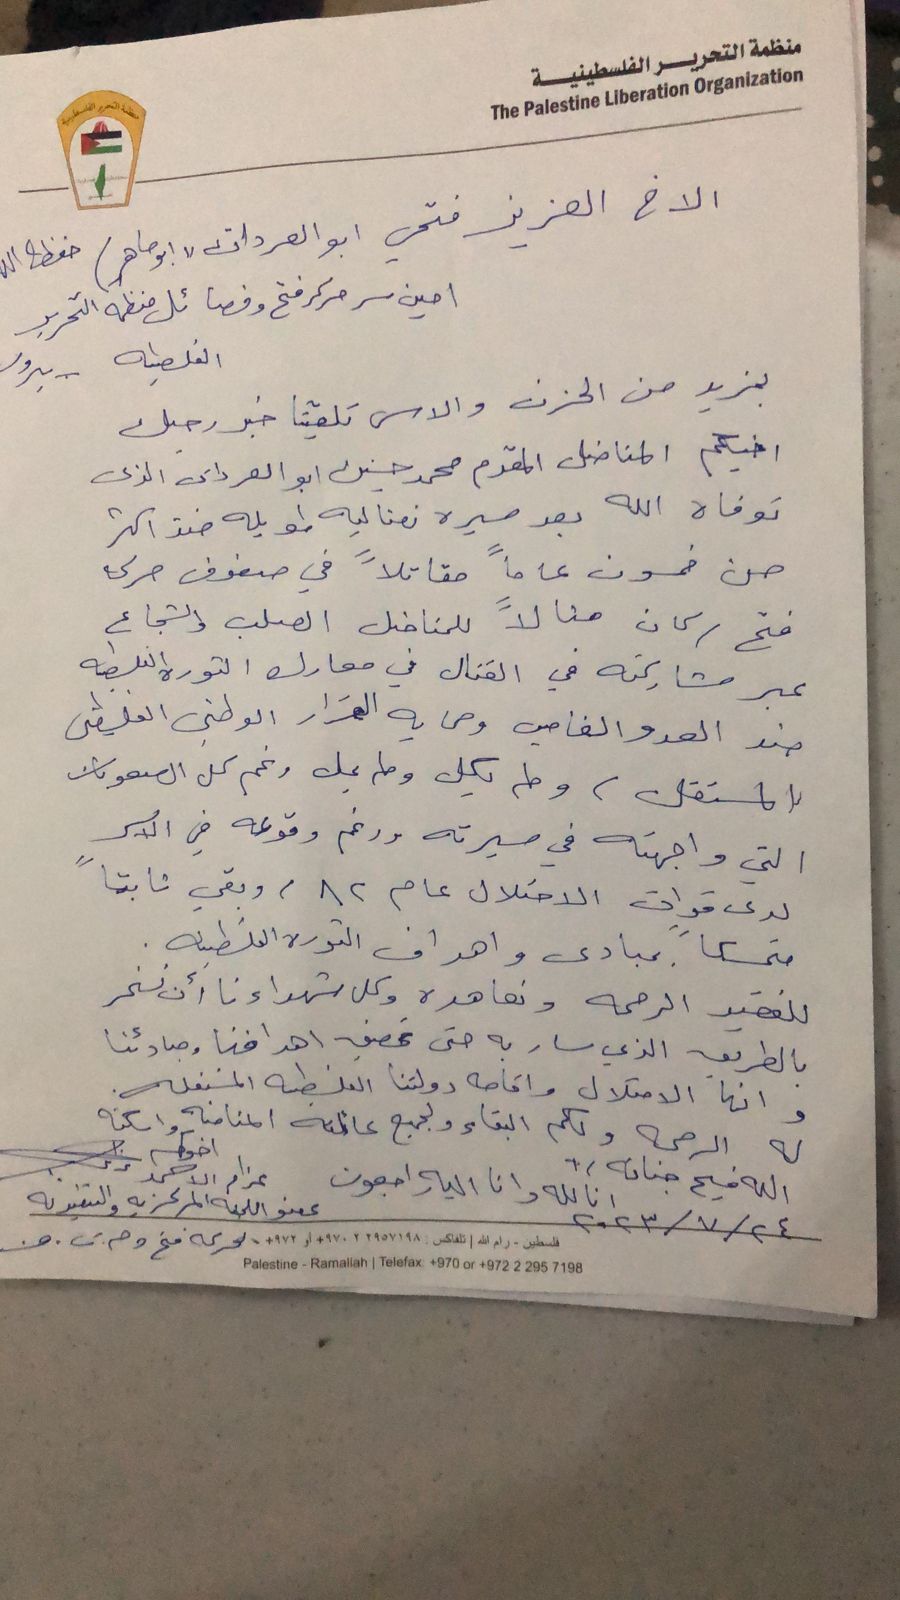 منظمة التحرير الفلسطينية
The Palestine Liberation Organization
منظمة التحرير الفلسطينية
الاخ العزيز فتحي ابو العردات "ابو ماهر" حفظه الله
امين سر حركة فتح وفصائل منظمة التحرير
الفلسطينيه - بيروت
بمزيد من الحزن والاسى تلقينا خبر رحيل
اخيكم المناضل المقدم محمد حسين ابو العردات الذي
توفاه الله بعد مسيره نضاليه طويله منذ اكثر
من خمسون عاماً مقاتلاً في صفوف حركة
فتح وكان مثالاً للمناضل الصلب والشجاع
عبر مشاركته في القتال في معارك الثوره الفلسطينيه
ضد العدو الغاصب وحمايه القرار الوطني الفلسطيني
المستقل، ولم يكل ولم يمل رغم كل الصعوبات
التي واجهته في مسيرته ورغم وقوعه في الاسر
لدى قوات الاحتلال عام ٨٢، وبقي ثابتاً
متمسكاً بمبادئ واهداف الثوره الفلسطينيه.
للفقيد الرحمه ونعاهده وكل شهداءنا أن نستمر
بالطريق الذي سار به حتى تحقيق اهدافنا ومبادئنا
و انهاء الاحتلال واقامه دولتنا الفلسطينيه المستقله.
له الرحمه ولكم البقاء ولجميع عائلته المناضله واسكنه
الله فسيح جناته
انا لله وانا اليه راجعون
٢٠٢٣/٧/٢٤
اخوكم
عزام الاحمد
عضو اللجنه المركزيه والتنفيذيه
لحركه فتح و م.ت.ف
فلسطين - رام الله | تلفاكس : ٢٩٥٧١٩٨ ٢ ٩٧٠+ أو ٩٧٢+
Palestine - Ramallah | Telefax: +970 or +972 2 295 7198